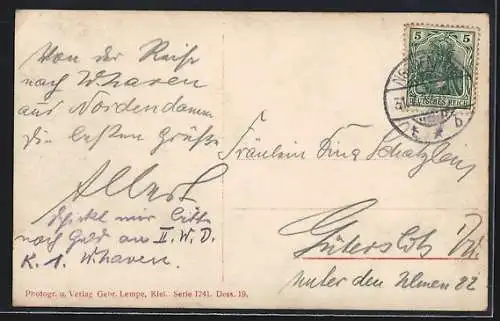 Von der Reise
nach W.haven
aus Nordendamm
die besten Grüße
Albert
Schickt mir bitte
nach Geld an II. W. D.
K. 1. W.haven.
5 5
DEUTSCHES REICH
31
b
Fräulein
Gütersloh i/W.
unter den Ulmen 22
Photogr. u. Verlag Gebr. Lempe, Kiel. Serie 1741. Dess. 19.